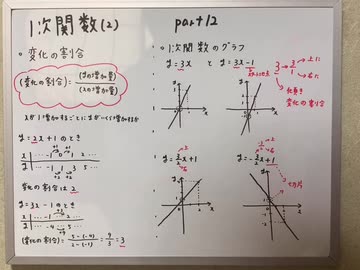 1次関数(2) part12
○ 変化の割合
(変化の割合)=(yの増加量)/(xの増加量)
xが1増加するごとにyがいくら増加するか
y=2x+1のとき
x … -1 0 1 2 …
y … -1 1 3 5 …
変化の割合は 2
y=3x-1のとき
x … -1 … 2 …
y … -4 … 5 …
(変化の割合)=5-(-4)/2-(-1)=9/3=3
○ 1次関数のグラフ
y=3x と y=3x-1
3→3/1
上に
右に
傾き
変化の割合
y=3/2x+1
y=-3/2x+1
切片